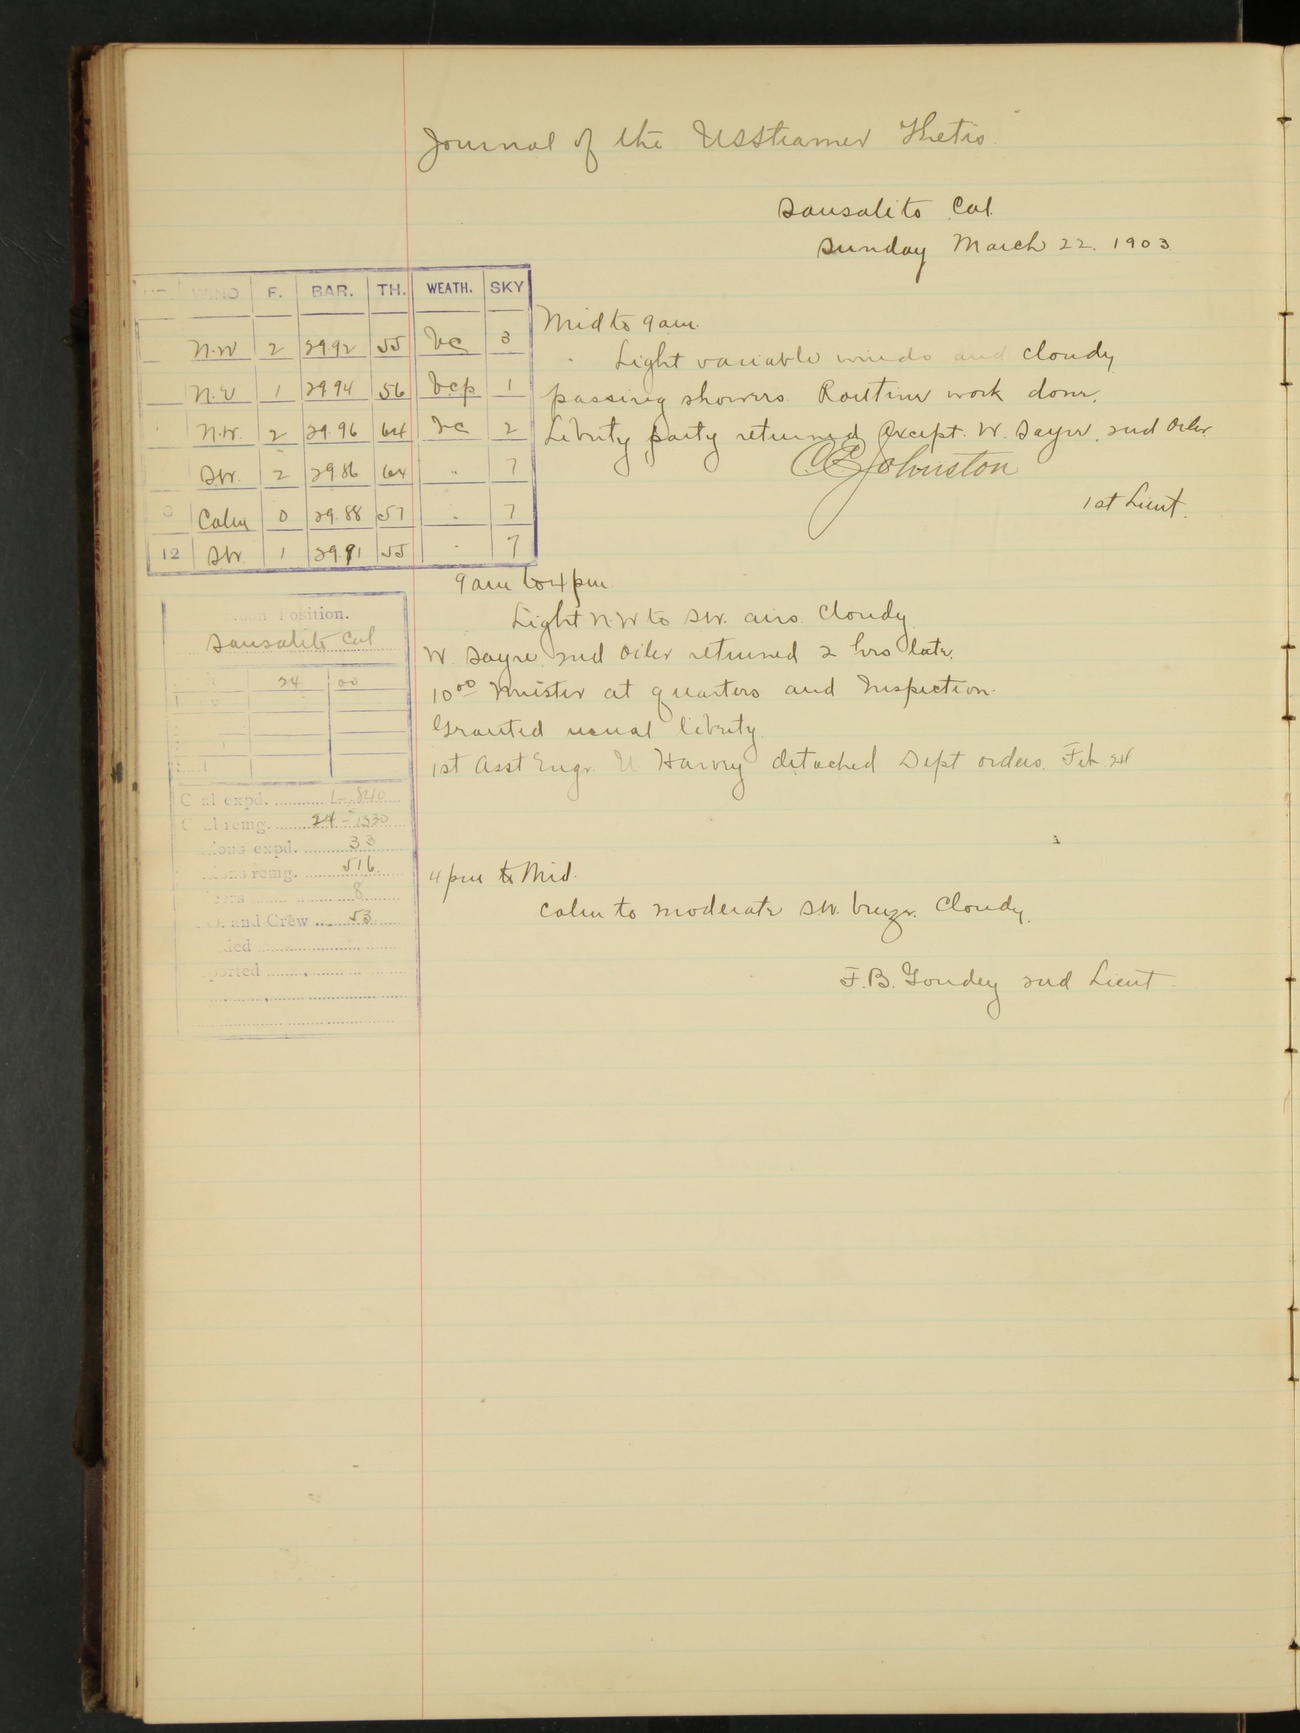 Journal of the USSteamer Thetis.
Sausalito Cal.
Sunday March 22. 1903
WIND F. BAR. TH. WEATH. SKY
N.W 2 29.92 55 bc 3
N.E 1 29.94 56 bcp 1
N.W. 2 29.96 64 bc 2
SW. 2 29.86 64 " 7
Calm 0 29.88 57 " 7
12 SW. 1 29.91 55 " 7
Mid to 9 am.
Light variable winds and cloudy
passing showers Routine work done.
Liberty party returned except W. Sayre, 2nd Oiler.
C.E. Johnston
1st Lieut.
9 am to 4 pm
Light N.W to SW. airs Cloudy
W. Sayre 2nd Oiler returned 2 hrs late.
10 00 Muster at quarters and Inspection.
Granted usual liberty
1st Asst Engr. Harvey detached Dept orders. Feb. 24
4 pm to Mid.
Calm to moderate SW. breeze. Cloudy.
F.B. Goudey 2nd Lieut
Position.
Sausalito Cal
24 00
expd. 1 - 840
remg. 24 - 1330
expd. 33
remg. 516
8
and Crew 53